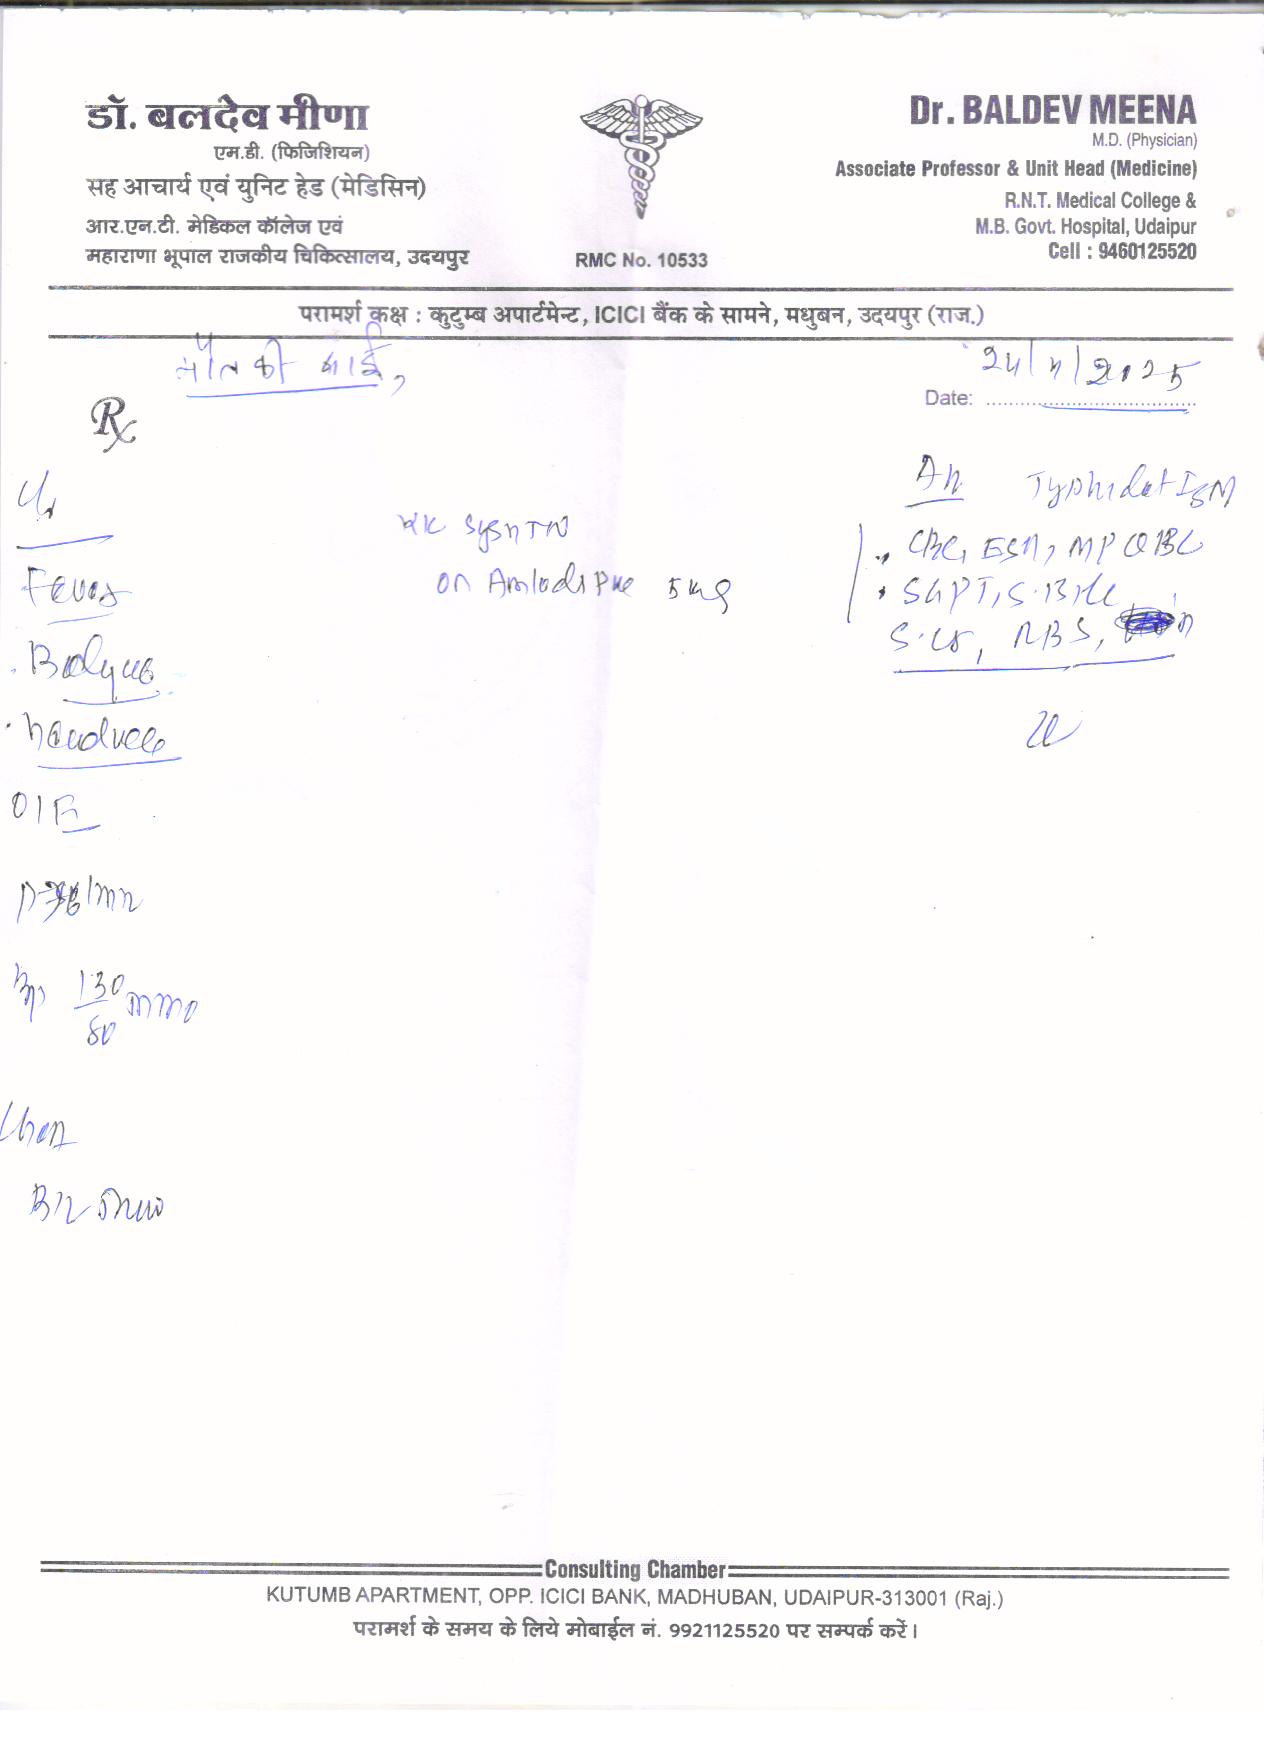 डॉ. बलदेव मीणा
एम.डी. (फिजिशियन)
सह आचार्य एवं युनिट हेड (मेडिसिन)
आर.एन.टी. मेडिकल कॉलेज एवं
महाराणा भूपाल राजकीय चिकित्सालय, उदयपुर
RMC No. 10533
Dr. BALDEV MEENA
M.D. (Physician)
Associate Professor & Unit Head (Medicine)
R.N.T. Medical College &
M.B. Govt. Hospital, Udaipur
Cell : 9460125520
परामर्श कक्ष : कुटुम्ब अपार्टमेन्ट, ICICI बैंक के सामने, मधुबन, उदयपुर (राज.)
की बाई,
Date:
Rx
Typhidot IgM
CBC, ESR, MP QBC
SGPT, S.Bil
S.Cr, RBS,
HTN
on Amlodipine 5mg
Fever
Bodyache
headache
O/E
P-/mn
Bp 130/80 mm
Chest
B/L
Consulting Chamber
KUTUMB APARTMENT, OPP. ICICI BANK, MADHUBAN, UDAIPUR-313001 (Raj.)
परामर्श के समय के लिये मोबाईल नं. 9921125520 पर सम्पर्क करें।